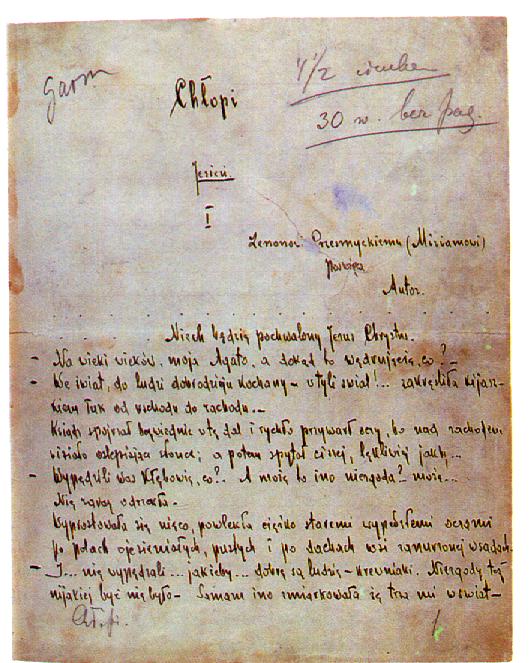 Garm
1 1/2 wierszu
30 w. bez pag.
Chłopi
Jesień.
I
Zenonowi Przesmyckiemu (Miriamowi)
poświęca
Autor.
Niech będzie pochwalony Jezus Chrystus.
- Na wieki wieków, moja Agato, a dokąd to wędrujecie, co? -
- We świat, do ludzi dobrodzieju kochany - w tyli świat!... zakreśliła kijasz-
kiem łuk od wschodu do zachodu. -
Ksiądz spojrzał bezwiednie w tę dal i rychło przywarł oczy, bo nad zachodem
wisiało oślepiające słońce; a potem spytał ciszej, lękliwiej jakby...
- Wypędzili was Kłębowie, co?.. A może to ino niezgoda?.. może...
Nie zaraz odrzekła. -
Wyprostowała się nieco, powlekła ciężko staremi wypełzłemi oczami
po polach ojesieniałych, pustych i po dachach wsi zanurzonej w sadach.
- I... nie wypędzali... jakżeby... dobre są ludzie - krewniaki. Niezgody też
nijakiej być nie było - Samam ino zmiarkowała że trza mi w świat -